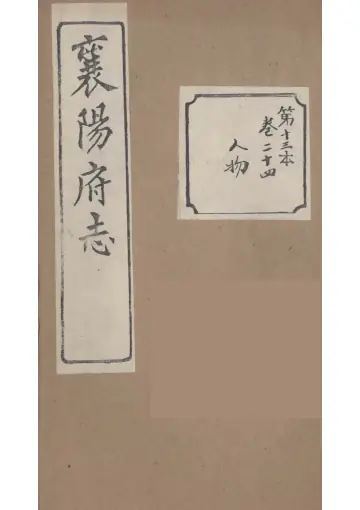 襄陽府志
第十三本
卷二十四
人物